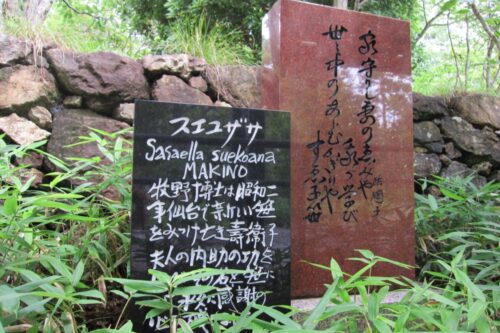 スエコザサ
Sasaella suekoana
MAKINO
牧野博士は昭和二
年仙台で新しい笹
をみつけ亡き壽衛子
夫人の内助の功を
名を世に
感謝の
家守りし妻の恵みや
我が学び
世の中のあらむかぎりや
すゑ子笹